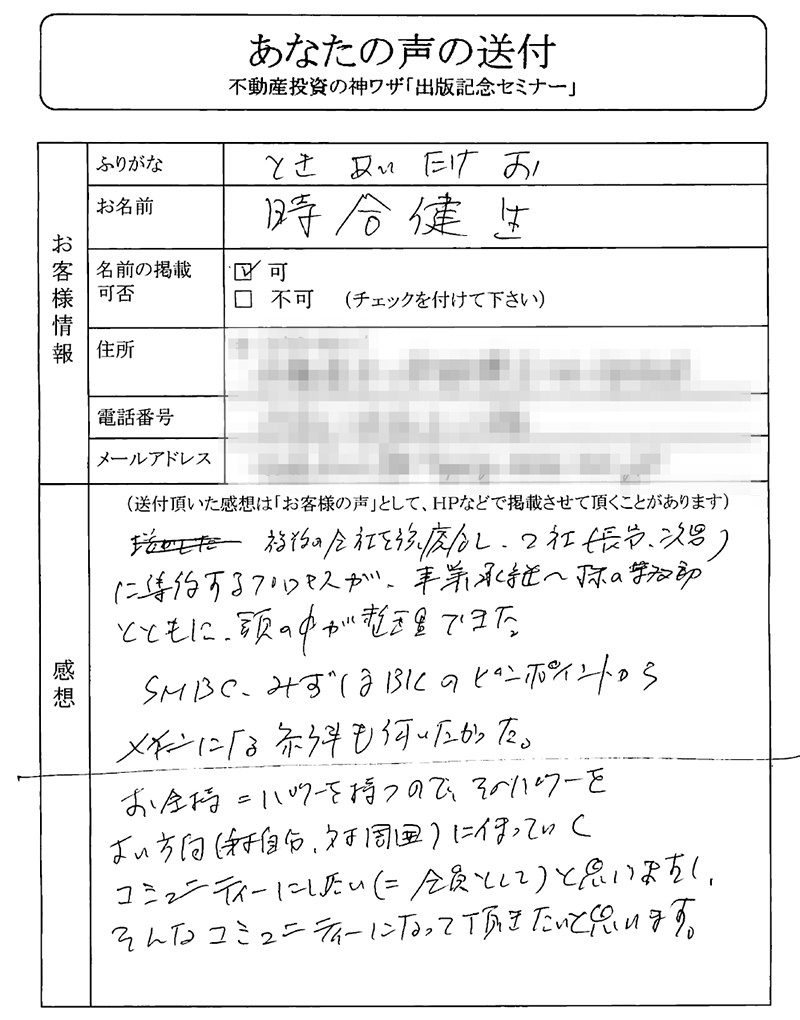 あなたの声の送付
不動産投資の神ワザ「出版記念セミナー」
お客様情報
ふりがな
とき あい たけ お
お名前
時合健生
名前の掲載可否
☑ 可
□ 不可 （チェックを付けて下さい）
住所
電話番号
メールアドレス
感想
（送付頂いた感想は「お客様の声」として、HPなどで掲載させて頂くことがあります）
の会社を し、2社（長男、次男）
に集約するプロセスが、事業承継へ
とともに、頭の中が整理できた。
SMBC、みずほBKのピンポイントから
メインになる条件も伺いたかった。
お金持＝パワーを持つので、そのパワーを
よい方向（対自分、対周囲）に使っていく
コミュニティーにしたい（＝会員として）と思いますし、
そんなコミュニティーになって頂きたいと思います。